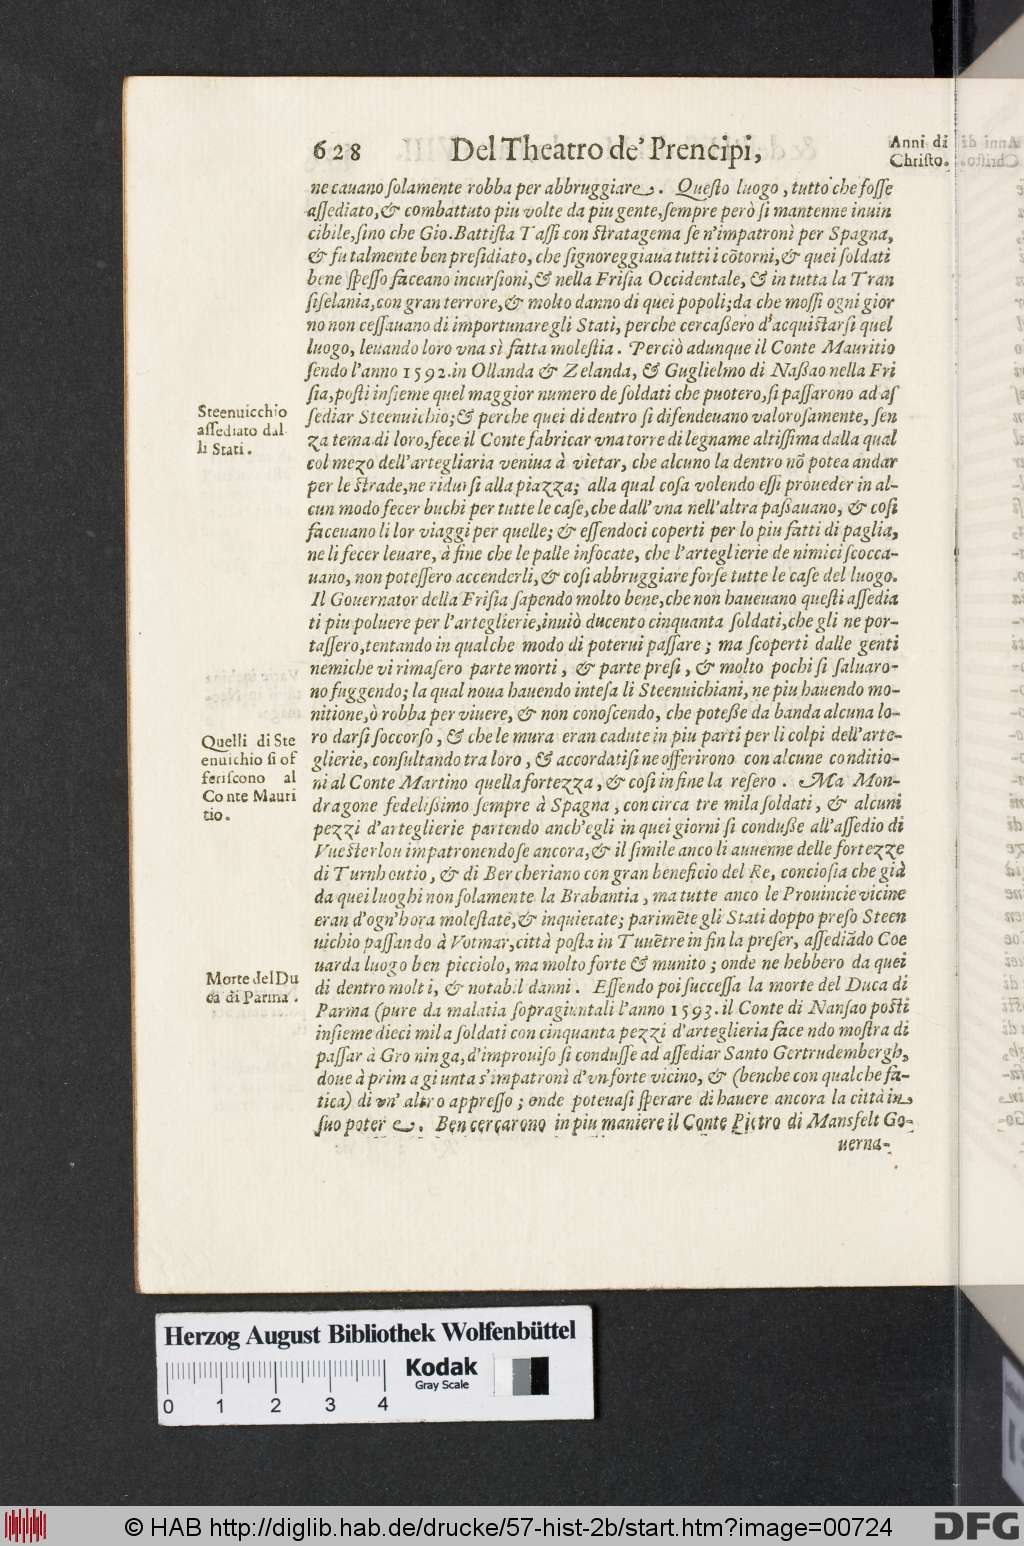 628 Del Theatro de' Prencipi,
Anni di
Christo.
ne cauano ſolamente robba per abbruggiare. Queſto luogo, tutto che foſſe
aſſediato, & combattuto piu volte da piu gente, ſempre però ſi mantenne inuin
cibile, ſino che Gio. Battiſta Taſſi con ſtratagema ſe n'impatronì per Spagna,
& fu talmente ben preſidiato, che ſignoreggiaua tutti i cõtorni, & quei ſoldati
bene ſpeſſo faceano incurſioni, & nella Friſia Occidentale, & in tutta la Tran
ſiſelania, con gran terrore, & molto danno di quei popoli; da che moſſi ogni gior
no non ceſſauano di importunare gli Stati, perche cercaßero d'acquiſtarſi quel
luogo, leuando loro vna sì fatta moleſtia. Perciò adunque il Conte Mauritio
ſendo l'anno 1592. in Ollanda & Zelanda, & Guglielmo di Naßao nella Fri
ſia, poſti inſieme quel maggior numero de ſoldati che puotero, ſi paſſarono ad aſ
ſediar Steenuichio; & perche quei di dentro ſi difendeuano valoroſamente, ſen
za tema di loro, fece il Conte fabricar vna torre di legname altiſſima dalla qual
col mezo dell'artegliaria veniua à vietar, che alcuno la dentro nõ potea andar
per le ſtrade, ne ridurſi alla piazza; alla qual coſa volendo eſſi proueder in al-
cun modo fecer buchi per tutte le caſe, che dall'vna nell'altra paßauano, & coſi
faceuano li lor viaggi per quelle; & eſſendoci coperti per lo piu fatti di paglia,
ne li fecer leuare, à fine che le palle infocate, che l'arteglierie de nimici ſcocca-
uano, non poteſſero accenderli, & coſi abbruggiare forſe tutte le caſe del luogo.
Il Gouernator della Friſia ſapendo molto bene, che non haueuano queſti aſſedia
ti piu poluere per l'arteglierie, inuiò ducento cinquanta ſoldati, che gli ne por-
taſſero, tentando in qualche modo di poterui paſſare; ma ſcoperti dalle genti
nemiche vi rimaſero parte morti, & parte preſi, & molto pochi ſi ſaluaro-
no fuggendo; la qual noua hauendo inteſa li Steenuichiani, ne piu hauendo mo-
nitione, ò robba per viuere, & non conoſcendo, che poteße da banda alcuna lo-
ro darſi ſoccorſo, & che le mura eran cadute in piu parti per li colpi dell'arte-
glierie, conſultando tra loro, & accordatiſi ne offerirono con alcune conditio-
ni al Conte Martino quella fortezza, & coſi in fine la reſero. Ma Mon-
dragone fedelißimo ſempre à Spagna, con circa tre mila ſoldati, & alcuni
pezzi d'arteglierie partendo anch'egli in quei giorni ſi conduße all'aſſedio di
Vueſterlou impatronendoſe ancora, & il ſimile anco li auuenne delle fortezze
di Turnhoutio, & di Bercheriano con gran beneficio del Re, concioſia che già
da quei luoghi non ſolamente la Brabantia, ma tutte anco le Prouincie vicine
eran d'ogn'hora moleſtate, & inquietate; parimẽte gli Stati doppo preſo Steen
uichio paſſando à Votmar, città poſta in Tuuẽtre in fin la preſer, aſſediãdo Coe
uarda luogo ben picciolo, ma molto forte & munito; onde ne hebbero da quei
di dentro molti, & notabil danni. Eſſendo poi ſucceſſa la morte del Duca di
Parma (pure da malatia ſopragiuntali l'anno 1593. il Conte di Nanſao poſti
inſieme dieci mila ſoldati con cinquanta pezzi d'arteglieria facendo moſtra di
paſſar à Groninga, d'improuiſo ſi conduſſe ad aſſediar Santo Gertrudembergh,
doue à prima giunta s'impatronì d'vn forte vicino, & (benche con qualche fa-
tica) di vn'altro appreſſo; onde poteuaſi ſperare di hauere ancora la città in
ſuo poter e. Ben cercarono in piu maniere il Conte Pietro di Mansfelt Go-
uerna-
Steenuicchio
aſſediato dal
li Stati.
Quelli di Ste
enuichio ſi of
feriſcono al
Conte Mauri
tio.
Morte del Du
ca di Parma.
Herzog August Bibliothek Wolfenbüttel
Kodak
Gray Scale
0 1 2 3 4
© HAB http://diglib.hab.de/drucke/57-hist-2b/start.htm?image=00724
DFG